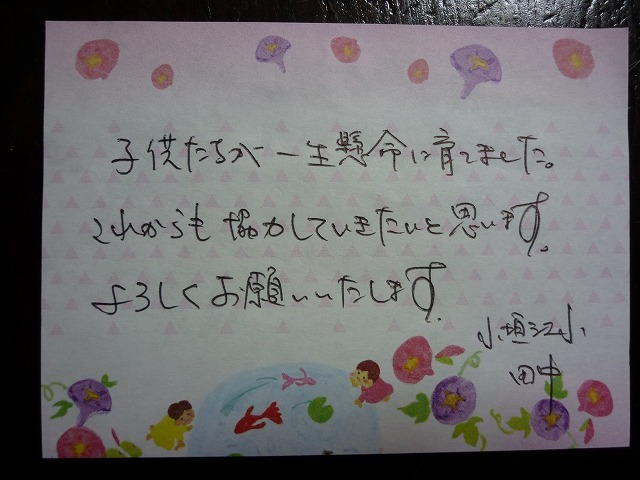 子供たちが一生懸命に育てました。
これからも協力していきたいと思います。
よろしくお願いいたします。
小垣江小
田中